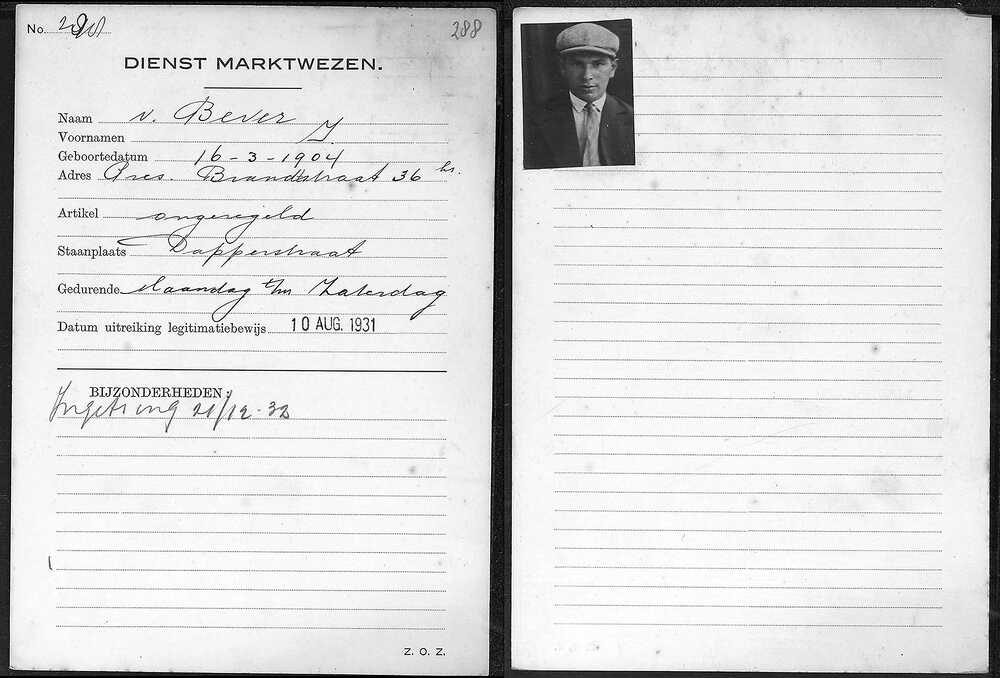 No.
288
DIENST MARKTWEZEN.
Naam v. Bever
Voornamen J.
Geboortedatum 16-3-1904
Adres Pres. Brandstraat 36 hs.
Artikel ongeregeld
Staanplaats Dapperstraat
Gedurende Maandag t/m Zaterdag
Datum uitreiking legitimatiebewijs 10 AUG. 1931
BIJZONDERHEDEN:
21/12-32
Z. O. Z.